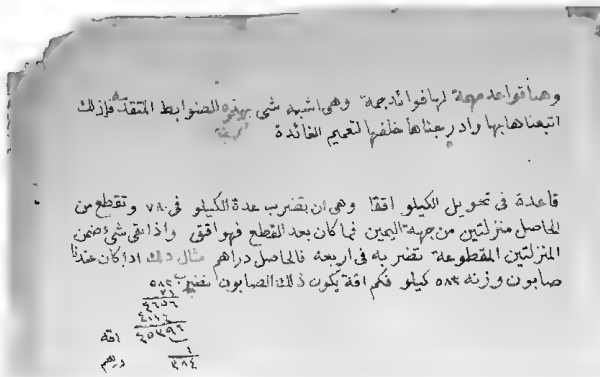 وهنا قواعد مهمة لها فوائد جمة وهي اشبه شى بهذه الضوابط المتقدمه فلذلك
اتبعناها بها وادرجناها خلفها لتعميم الفائدة
قاعدة في تحويل الكيلو اققا وهي ان تضرب عدة الكيلو في ٧٨ وتقطع من
الحاصل منزلتين من جهة اليمين فما كان بعد القطع فهو اقق واذا بقي شئ ضمن
المنزلتين المقطوعة تضربه في اربعة فالحاصل دراهم مثال ذلك اذا كان عندنا
صابون وزنه ٥٨٢ كيلو فكم اقة يكون ذلك الصابون نضرب ٥٨٢
٧٨
٤٦٥٦
٤٠٧٤
٤٥٣٩٦ اقه
٤
٣٨٤ درهم